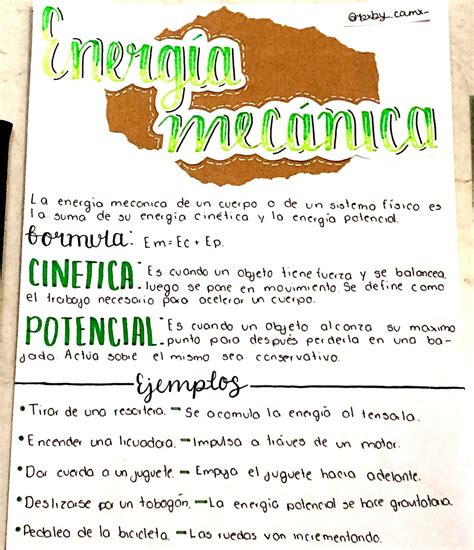 @bxby_camx_
Energía
mecánica
La energia mecanica de un cuerpo o de un sistema físico es
la suma de su energía cinética y la energía potencial.
formula: Em=Ec + Ep.
CINETICA: Es cuando un objeto tiene fuerza y se balancea,
luego se pone en movimiento. Se define como
el trabajo necesario para acelerar un cuerpo.
POTENCIAL: Es cuando un objeto alcanza su maximo
punto para después perderla en una ba-
jada. Actúa sobre el mismo sea conservativo.
Ejemplos
• Tirar de una resortera. – Se acomula la energía al tensarla.
• Encender una licuadora. – Impulsa a tráves de un motor.
• Dar cuerda a un juguete. – Empuja el juguete hacia adelante.
• Deslizarse por un tobogán. – La energía potencial se hace gravitatoria.
• Pedaleo de la bicicleta. – Las ruedas van incrementando.